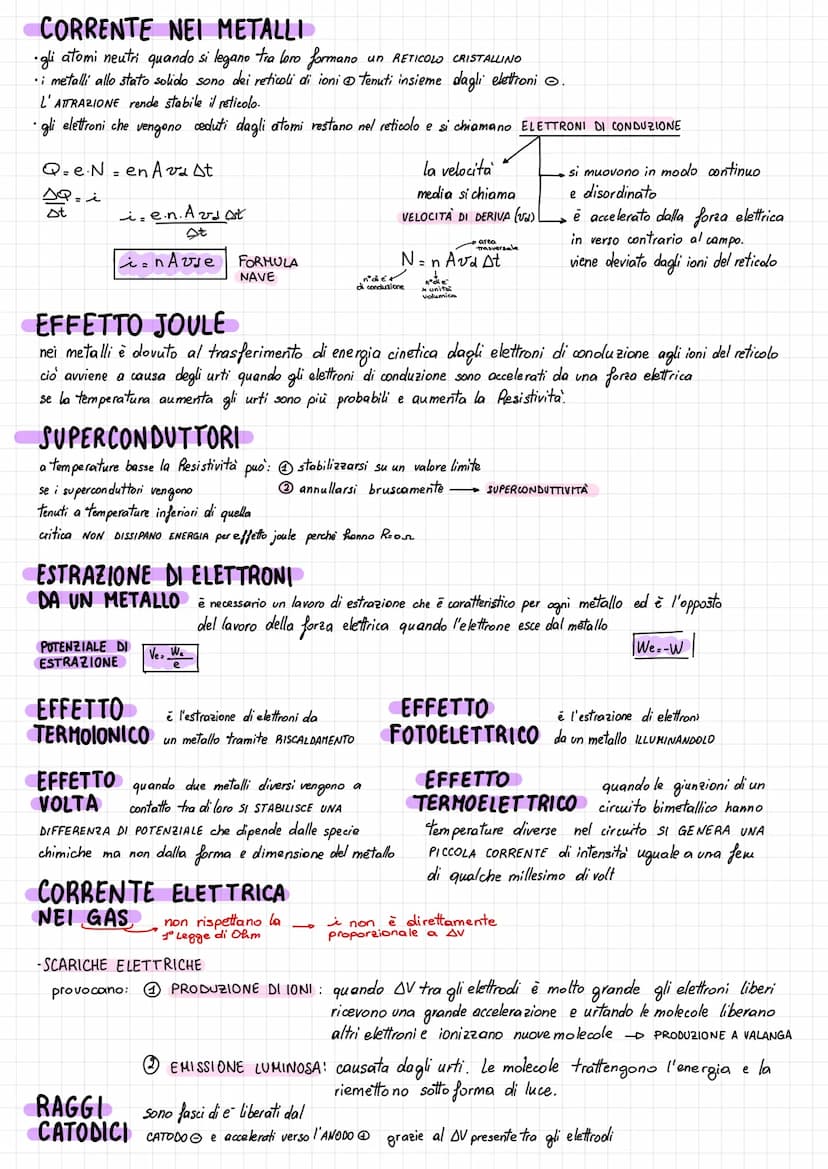 CORRENTE NEI METALLI
·gli atomi neutri quando si legano tra loro formano un RETICOLO CRISTALLINO
·i metalli allo stato solido sono dei reticoli di ioni ⊕ tenuti insieme dagli elettroni ⊖.
L'ATTRAZIONE rende stabile il reticolo.
·gli elettroni che vengono ceduti dagli atomi restano nel reticolo e si chiamano ELETTRONI DI CONDUZIONE
Q = e·N = enAvdΔt
ΔQ/Δt = i
i = e.n.AvdΔt/Δt
i = nAvde FORMULA NAVE
la velocità
media si chiama
VELOCITÀ DI DERIVA (vd)
N = nAvdΔt
area trasversale
n° di e⁻ di conduzione
n° di e⁻ x unità volumica
si muovono in modo continuo
e disordinato
è accelerato dalla forza elettrica
in verso contrario al campo.
viene deviato dagli ioni del reticolo
EFFETTO JOULE
nei metalli è dovuto al trasferimento di energia cinetica dagli elettroni di conduzione agli ioni del reticolo
ciò avviene a causa degli urti quando gli elettroni di conduzione sono accelerati da una forza elettrica
se la temperatura aumenta gli urti sono più probabili e aumenta la Resistività.
SUPERCONDUTTORI
a temperature basse la Resistività può: ① stabilizzarsi su un valore limite
② annullarsi bruscamente → SUPERCONDUTTIVITÀ
se i superconduttori vengono
tenuti a temperature inferiori di quella
critica NON DISSIPANO ENERGIA per effetto joule perché hanno R=0Ω
ESTRAZIONE DI ELETTRONI
DA UN METALLO è necessario un lavoro di estrazione che è caratteristico per ogni metallo ed è l'opposto
del lavoro della forza elettrica quando l'elettrone esce dal metallo
We=-W
POTENZIALE DI
ESTRAZIONE
Ve = We/e
EFFETTO
TERMOIONICO
è l'estrazione di elettroni da
un metallo tramite RISCALDAMENTO
EFFETTO
FOTOELETTRICO
è l'estrazione di elettroni
da un metallo ILLUMINANDOLO
EFFETTO
VOLTA
quando due metalli diversi vengono a
contatto tra di loro SI STABILISCE UNA
DIFFERENZA DI POTENZIALE che dipende dalle specie
chimiche ma non dalla forma e dimensione del metallo
EFFETTO
TERMOELETTRICO
quando le giunzioni di un
circuito bimetallico hanno
temperature diverse nel circuito SI GENERA UNA
PICCOLA CORRENTE di intensità uguale a una fem
di qualche millesimo di volt
CORRENTE ELETTRICA
NEI GAS
non rispettano la
1° Legge di Ohm
→ i non è direttamente
proporzionale a ΔV
-SCARICHE ELETTRICHE
provocano: ① PRODUZIONE DI IONI: quando ΔV tra gli elettrodi è molto grande gli elettroni liberi
ricevono una grande accelerazione e urtando le molecole liberano
altri elettroni e ionizzano nuove molecole → PRODUZIONE A VALANGA
② EMISSIONE LUMINOSA: causata dagli urti. Le molecole trattengono l'energia e la
riemettono sotto forma di luce.
RAGGI
CATODICI
sono fasci di e⁻ liberati dal
CATODO ⊖ e accelerati verso l'ANODO ⊕ grazie al ΔV presente tra gli elettrodi